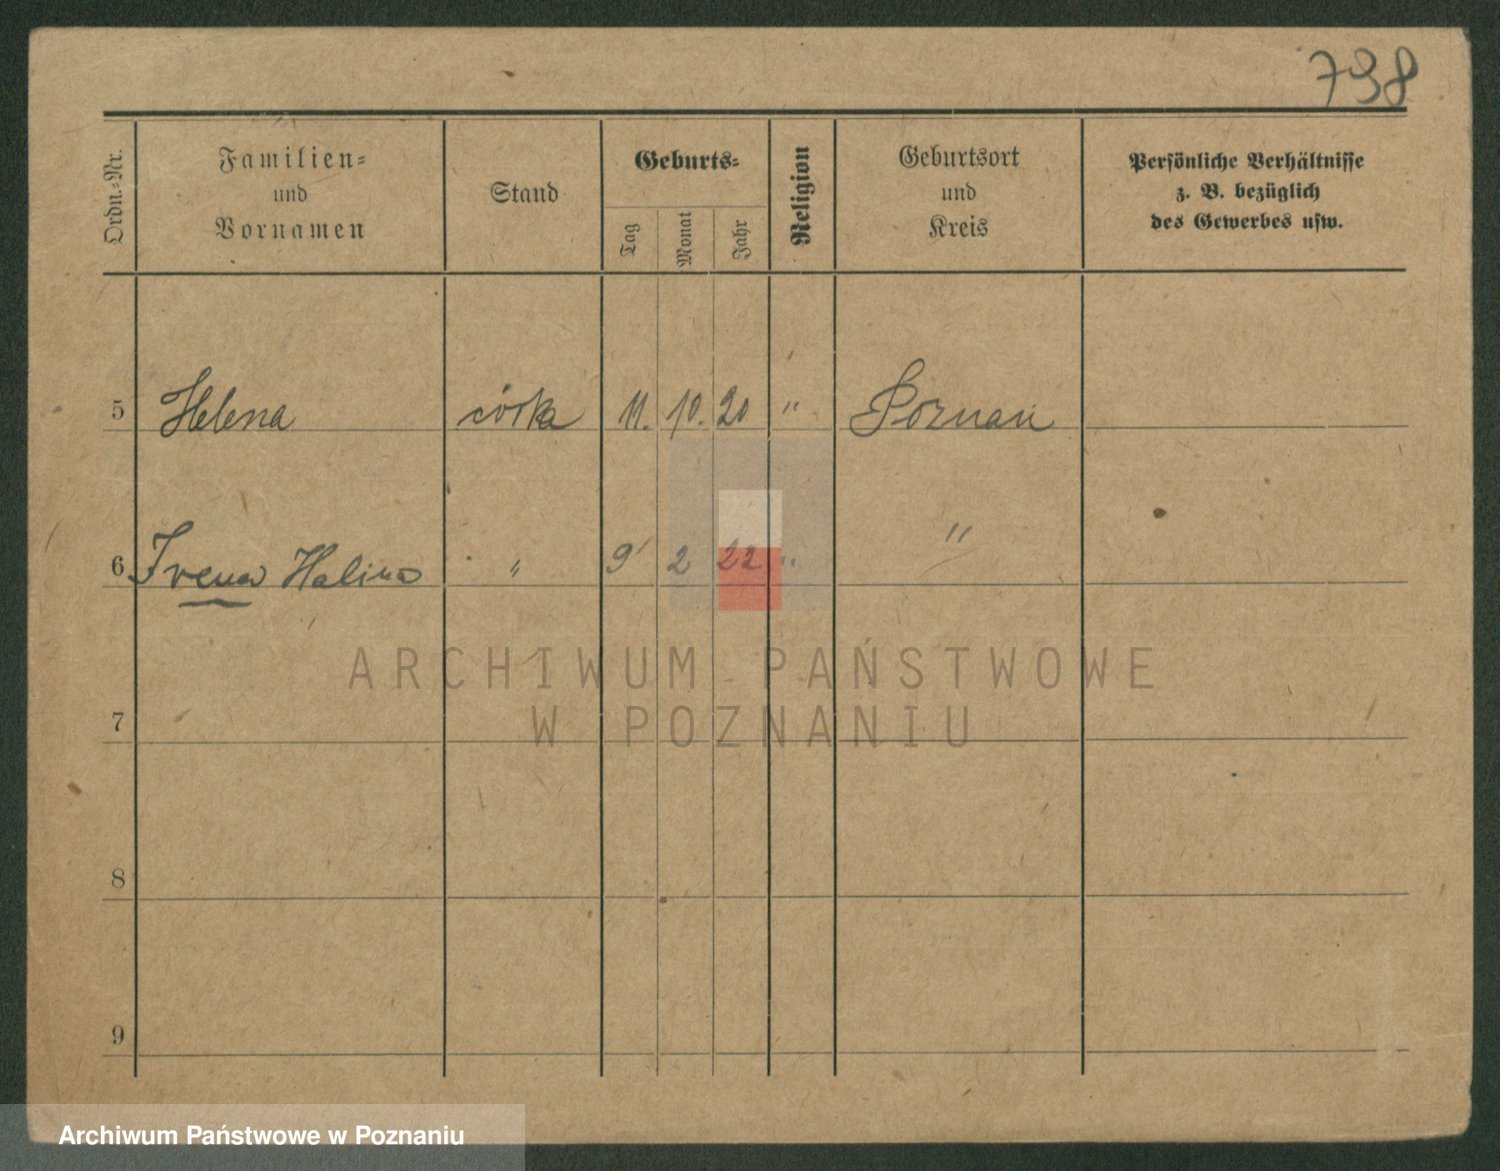 798
Ordn.-Nr.
Familien-
und
Vornamen
Stand
Geburts-
Tag
Monat
Jahr
Religion
Geburtsort
und
Kreis
Persönliche Verhältnisse
z. B. bezüglich
des Gewerbes usw.
5 Helena córka 11. 10. 20 " Poznań
6 Irena Halina " 9 2 22 " "
ARCHIWUM PAŃSTWOWE
W POZNANIU
7
8
9
Archiwum Państwowe w Poznaniu